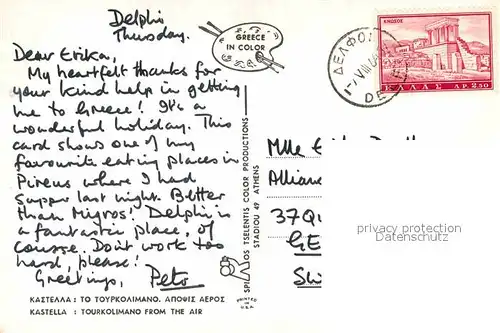 Delphi
Thursday.
Dear Erika,
My heartfelt thanks for
your kind help in getting
me to Greece! It's a
wonderful holiday. This
card shows one of my
favourite eating places in
Pireus where I had
supper last night. Better
than Migros! Delphi is
a fantastic place, of
course. Don't work too
hard, please!
Greetings, Pete
ΚΑΣΤΕΛΛΑ: ΤΟ ΤΟΥΡΚΟΛΙΜΑΝΟ. ΑΠΟΨΙΣ ΑΕΡΟΣ
KASTELLA: TOURKOLIMANO FROM THE AIR
GREECE
IN COLOR
SPYROS TSELENTIS COLOR PRODUCTIONS
STADIOU 49 ATHENS
PRINTED IN
U.S.A.
ΔΕΛΦΟΙ
VIII
DE
ΚΝΩΣΟΣ
ΕΛΛΑΣ ΔΡ. 2.50
Mlle
Allian
37 Qu
GE
privacy protection
Datenschutz